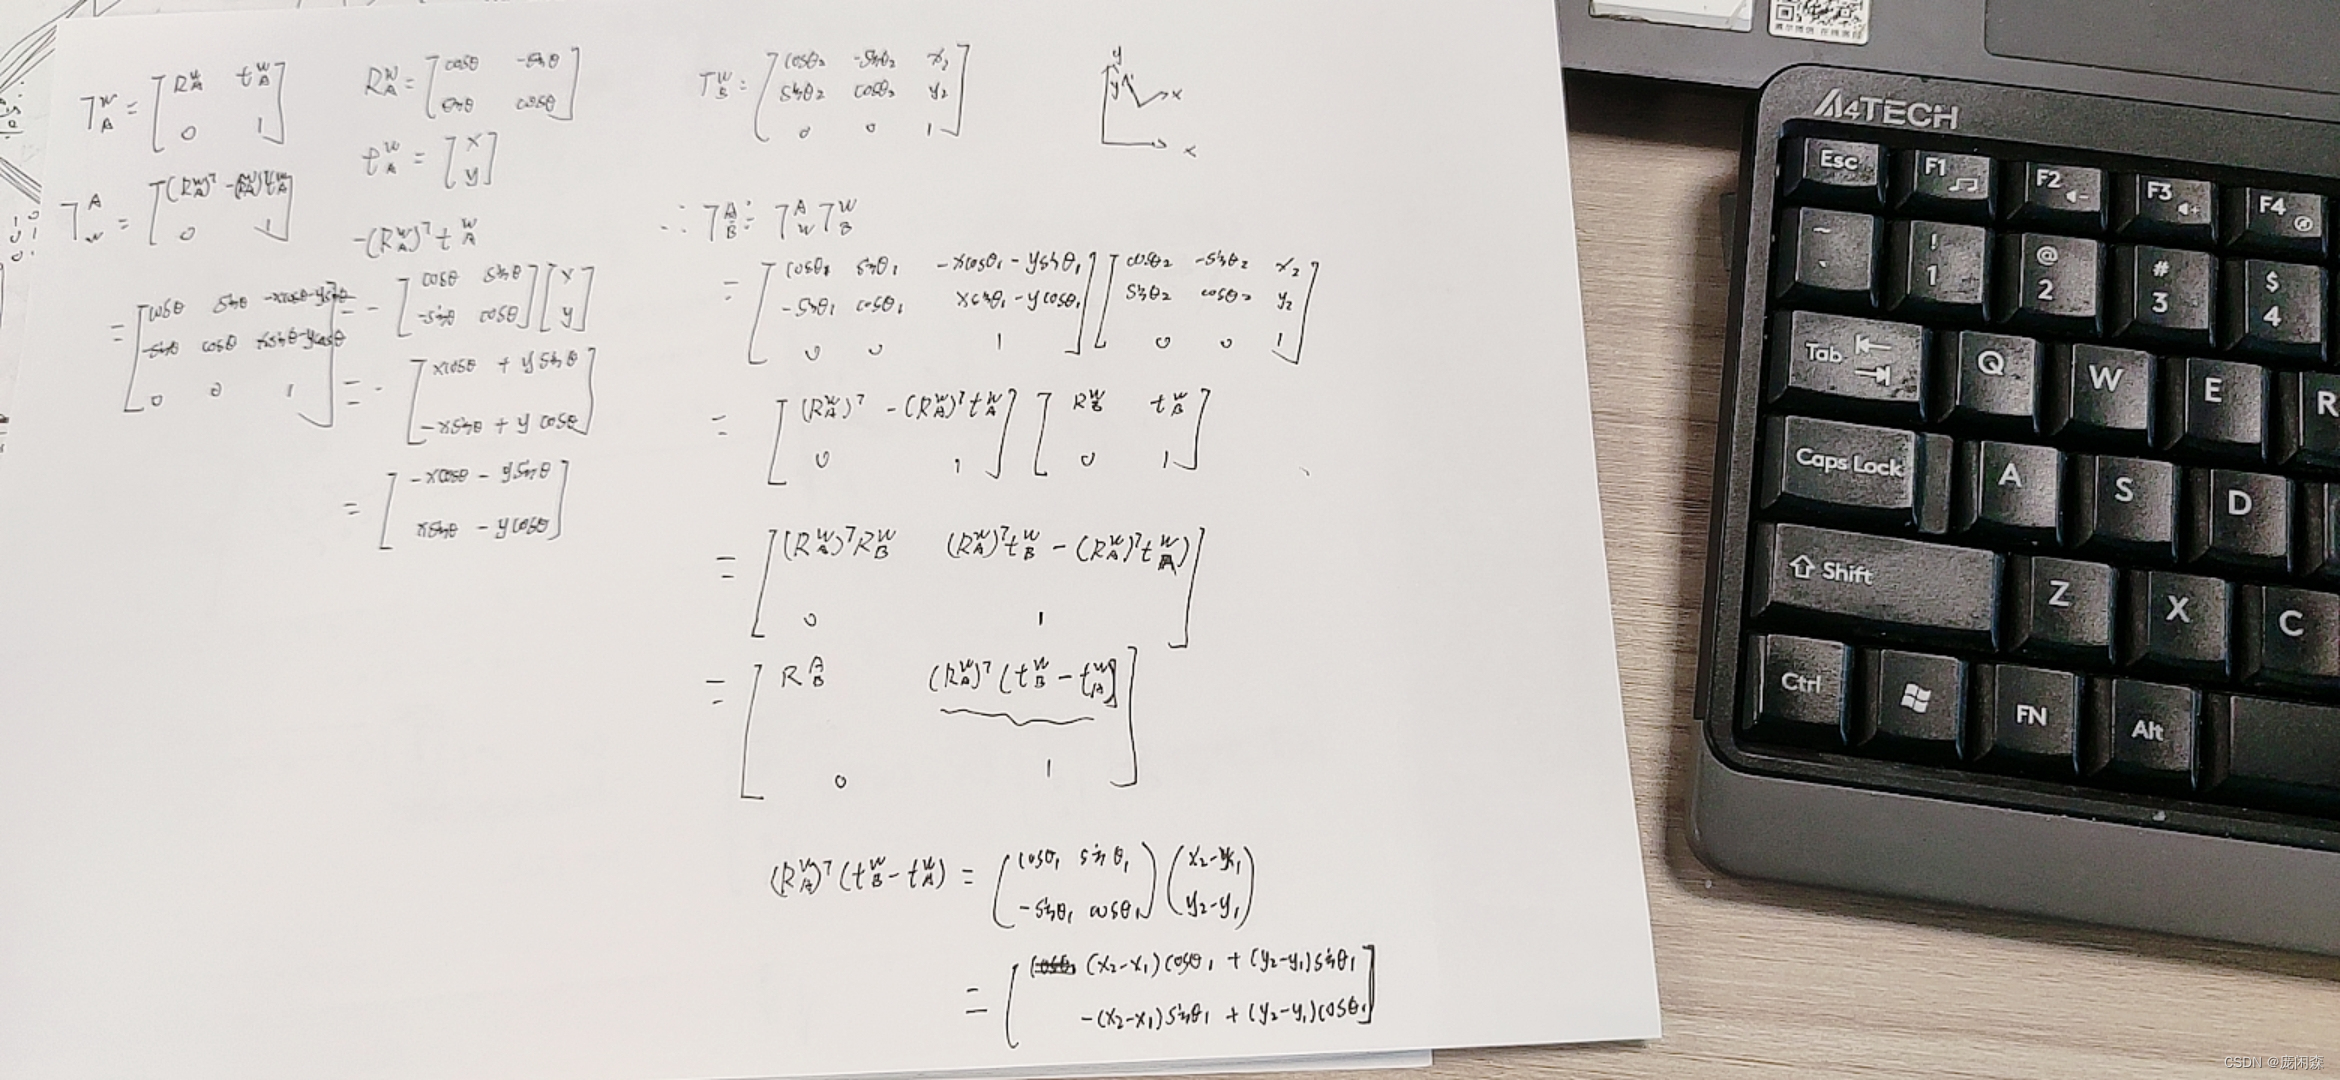 T^W_A = [ R^W_A t^W_A ; 0 1 ]
R^W_A = [ cosθ -sinθ ; sinθ cosθ ]
t^W_A = [ x ; y ]
T^A_W = [ (R^W_A)^T -(R^W_A)^T t^W_A ; 0 1 ]
-(R^W_A)^T t^W_A
= [ cosθ sinθ -xcosθ-ysinθ ; -sinθ cosθ xsinθ-ycosθ ; 0 0 1 ]
= - [ cosθ sinθ ; -sinθ cosθ ] [ x ; y ]
= - [ xcosθ + ysinθ ; -xsinθ + ycosθ ]
= [ -xcosθ - ysinθ ; xsinθ - ycosθ ]
T^W_B = [ cosθ₂ -sinθ₂ x₂ ; sinθ₂ cosθ₂ y₂ ; 0 0 1 ]
y
y x
x
∴ T^A_B = T^A_W T^W_B
= [ cosθ₁ sinθ₁ -xcosθ₁-ysinθ₁ ; -sinθ₁ cosθ₁ xsinθ₁-ycosθ₁ ; 0 0 1 ] [ cosθ₂ -sinθ₂ x₂ ; sinθ₂ cosθ₂ y₂ ; 0 0 1 ]
= [ (R^W_A)^T -(R^W_A)^T t^W_A ; 0 1 ] [ R^W_B t^W_B ; 0 1 ]
= [ (R^W_A)^T R^W_B (R^W_A)^T t^W_B - (R^W_A)^T t^W_A) ; 0 1 ]
= [ R^A_B (R^W_A)^T (t^W_B - t^W_A) ; 0 1 ]
(R^W_A)^T (t^W_B - t^W_A) = ( cosθ₁ sinθ₁ ; -sinθ₁ cosθ₁ ) ( x₂-x₁ ; y₂-y₁ )
= [ (x₂-x₁)cosθ₁ + (y₂-y₁)sinθ₁ ; -(x₂-x₁)sinθ₁ + (y₂-y₁)cosθ₁ ]
A4TECH
Esc F1 F2 F3 F4
~ ` ! 1 @ 2 # 3 $ 4
Tab Q W E R
Caps Lock A S D
Shift Z X C
Ctrl FN Alt
CSDN @庞闲森